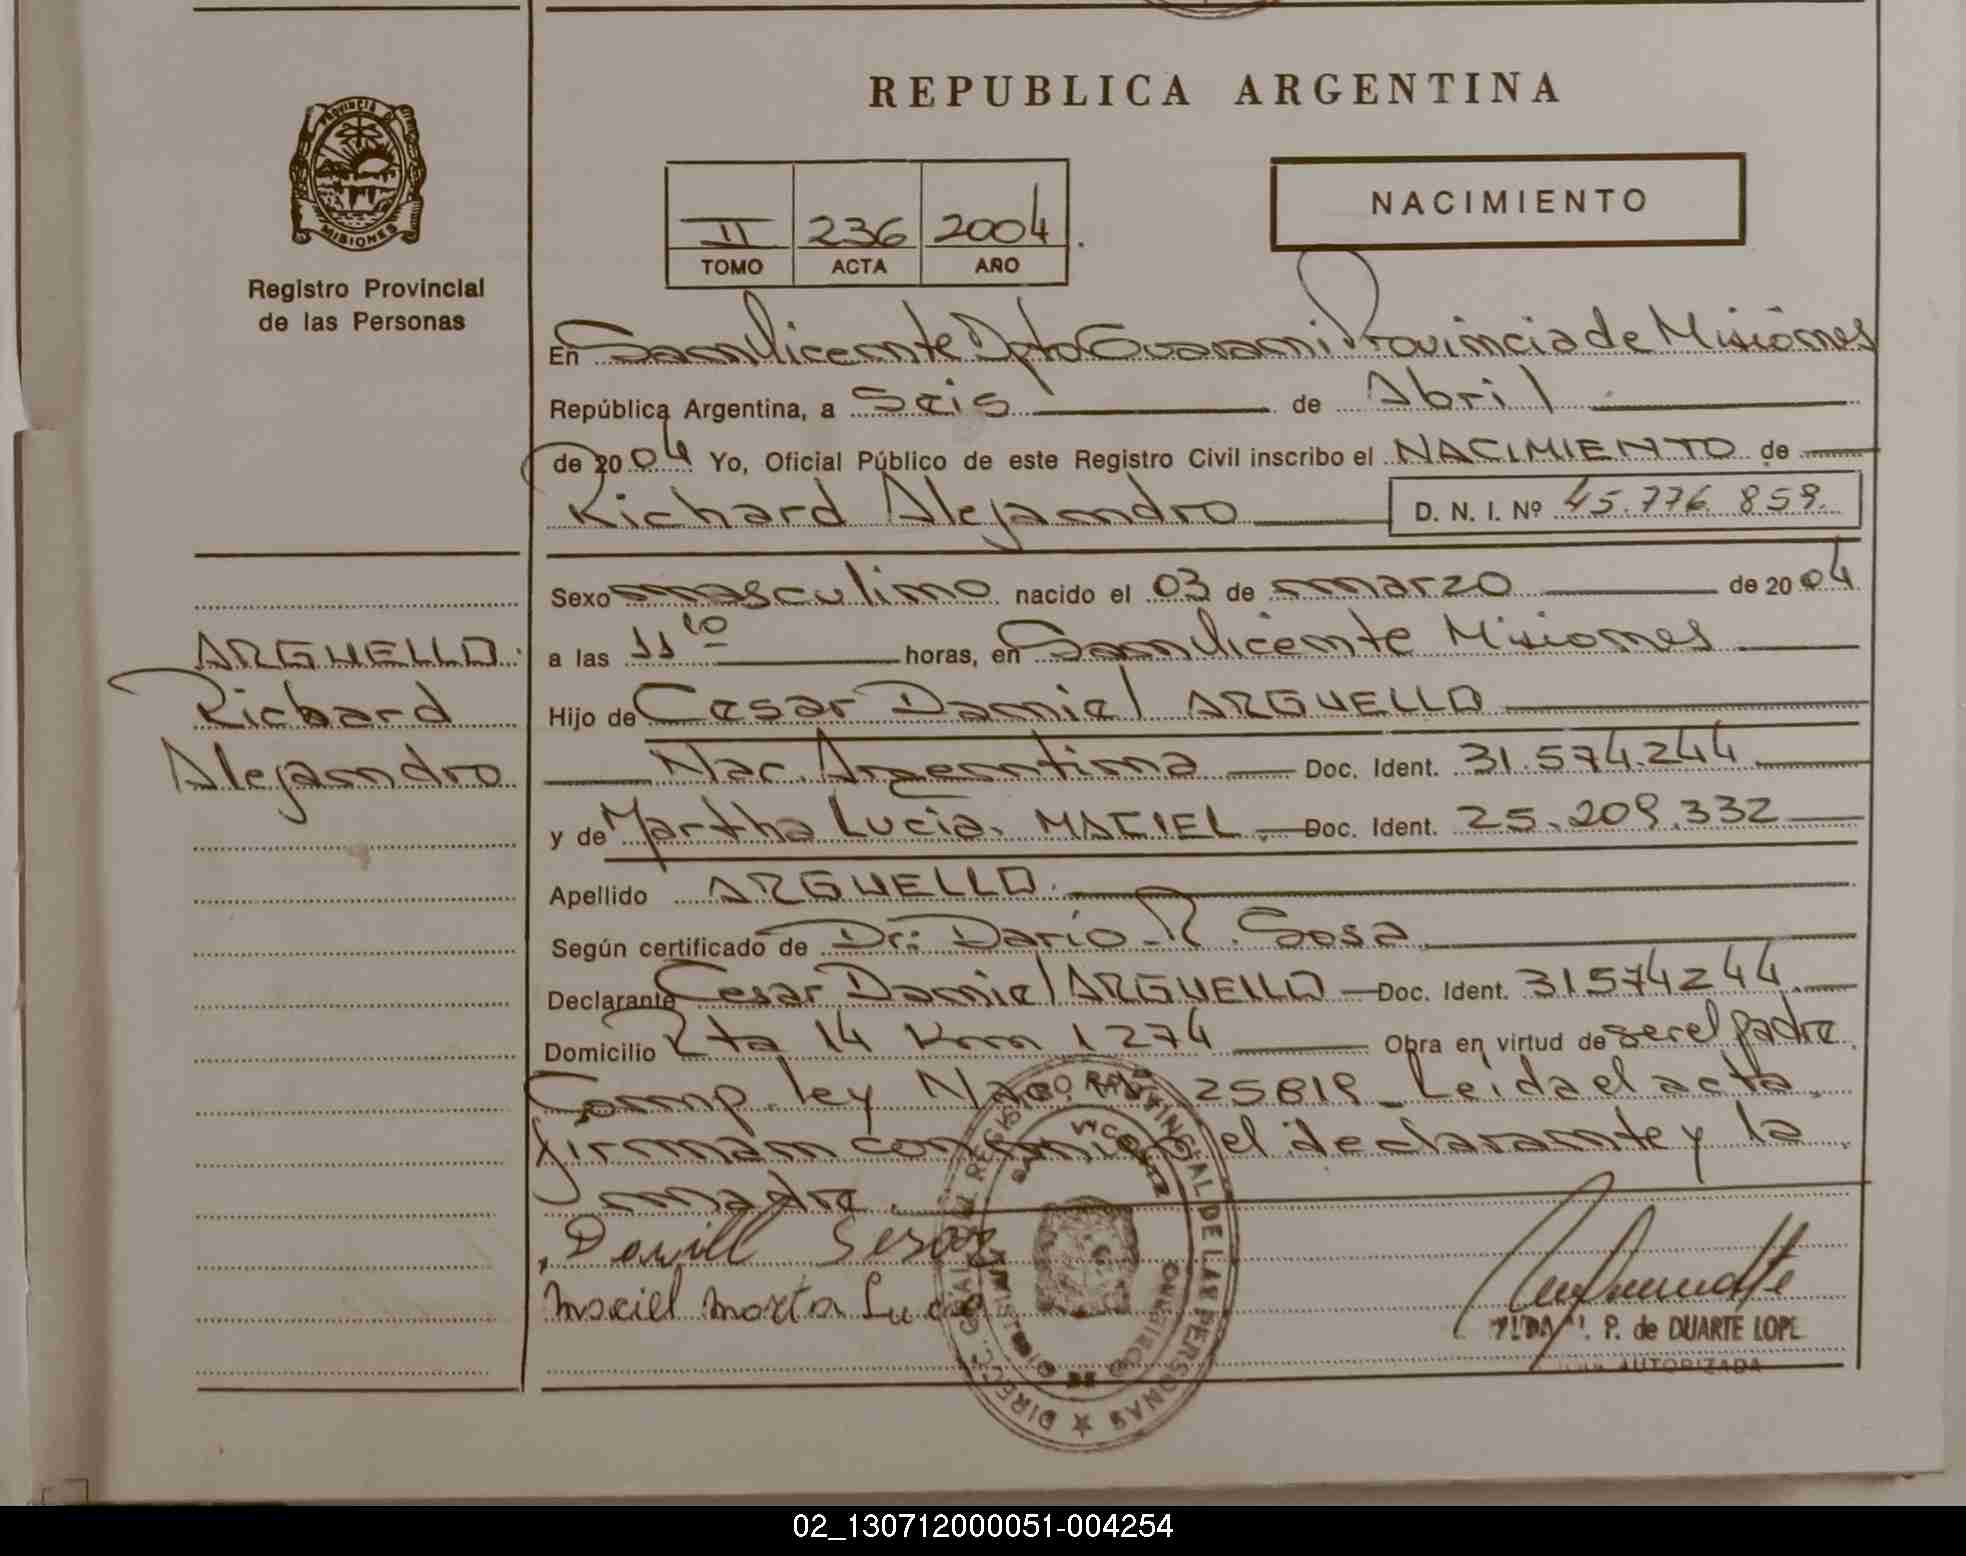 REPUBLICA ARGENTINA
PROVINCIA DE
MISIONES
Registro Provincial
de las Personas
II 236 2004
TOMO ACTA AÑO
NACIMIENTO
En San Vicente Dpto Guarani Provincia de Misiones
República Argentina, a Seis de Abril
de 2004 Yo, Oficial Público de este Registro Civil inscribo el NACIMIENTO de
Richard Alejandro D. N. I. Nº 45.776 859.
Sexo masculino nacido el 03 de marzo de 2004
ARGUELLO
Richard
Alejandro
a las 11 10 horas, en San Vicente Misiones
Hijo de Cesar Daniel ARGUELLO
Nac. Argentina Doc. Ident. 31.574.244
y de Martha Lucia. MACIEL Doc. Ident. 25.209.332
Apellido ARGUELLO.
Según certificado de Dr: Dario R. Sosa
Declarante Cesar Daniel ARGUELLO Doc. Ident. 31574244.
Domicilio Rta 14 Km 1274 Obra en virtud de ser el padre.
Comp. ley Nac. Nº 25819 Leida el acta
firman conmigo el declarante y la
madre.
Maciel Marta Lucia
P. de DUARTE LOPE
AUTORIZADA
REGISTRO PROVINCIAL DE LAS PERSONAS
SAN VICENTE
02_130712000051-004254